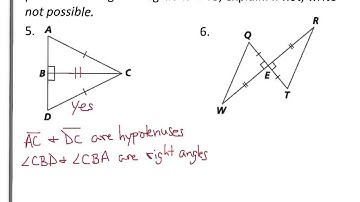 not possible.
5.
A
B
C
D
yes
6.
R
Q
E
T
W
AC + DC are hypotenuses
∠CBD + ∠CBA are right angles